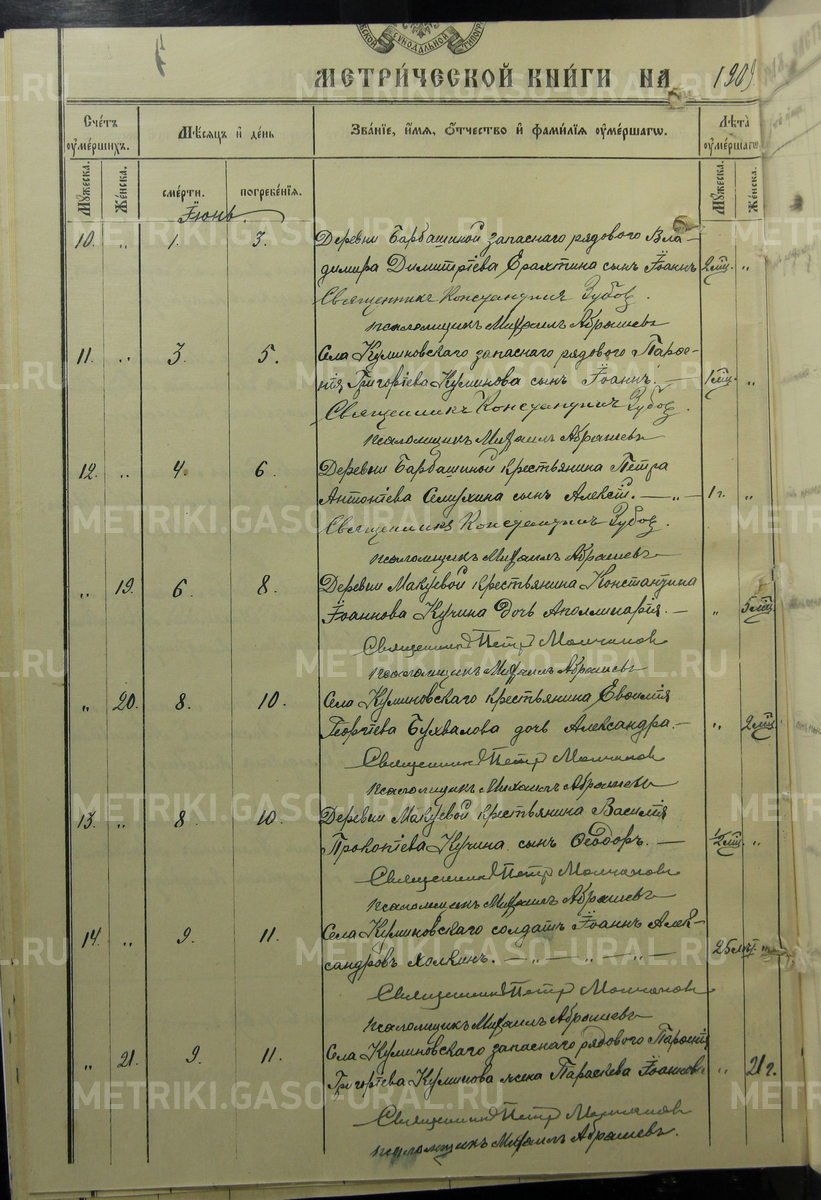 СѴНОДАЛЬНОЙ
МЕТРИ́ЧЕСКОЙ КНИ́ГИ НА 1909
Сче́тъ ᲂу҆ме́ршихъ.
Мѣ́сяцъ и҆ де́нь
Зва́нїе, и҆́мя, ѻ҆́тчество и҆ фами́лїя ᲂу҆ме́ршагѡ.
Лѣ́та ᲂу҆ме́ршагѡ
Мꙋ́жеска.
Же́нска.
сме́рти.
погребе́нїя.
Мꙋ́жеска.
Же́нска.
Іюнь.
10. „ 1. 3. Деревни Барбашиной запаснаго рядового Вла-
димира Димитріева Ерахтина сынъ Іоаннъ 2 мц. „
Священникъ Константинъ Зубов.
псаломщикъ Михаилъ Абрашевъ
11. „ 3. 5. Села Куликовскаго запаснаго рядового Парѳе-
нія Григоріева Куликова сынъ Іоаннъ. — 1 мц. „
Священникъ Константинъ Зубов.
псаломщикъ Михаилъ Абрашевъ
12. „ 4. 6. Деревни Барбашиной крестьянина Петра
Антоніева Семухина сынъ Алексій. — „ — 1 г. „
Священникъ Константинъ Зубов.
псаломщикъ Михаилъ Абрашевъ
„ 19. 6. 8. Деревни Макуевой крестьянина Константина
Іоаннова Кучина дочь Аполлинарія. — „ 5 мц.
Священникъ Петр Молчанов
псаломщикъ Михаилъ Абрашевъ
„ 20. 8. 10. Села Куликовскаго крестьянина Евѳимія
Георгіева Бухвалова дочь Александра — „ 2 мц.
Священникъ Петр Молчанов
псаломщикъ Михаилъ Абрашевъ
13. „ 8. 10. Деревни Макуевой крестьянина Василія
Прокопіева Кучина сынъ Ѳеодоръ. — 1/2 мц. „
Священникъ Петр Молчанов
псаломщикъ Михаилъ Абрашевъ
14. „ 9. 11. Села Куликовскаго солдатъ Іоаннъ Алек-
сандровъ Холкинъ. — „ — „ — „ — 25 лѣт „
Священникъ Петр Молчанов
псаломщикъ Михаилъ Абрашевъ
„ 21. 9. 11. Села Куликовскаго запаснаго рядового Парѳенія
Григоріева Куликова жена Параскева Іоаннова „ 21 г.
Священникъ Петр Молчанов
псаломщикъ Михаилъ Абрашевъ.
METRIKI.GASO-URAL.RU